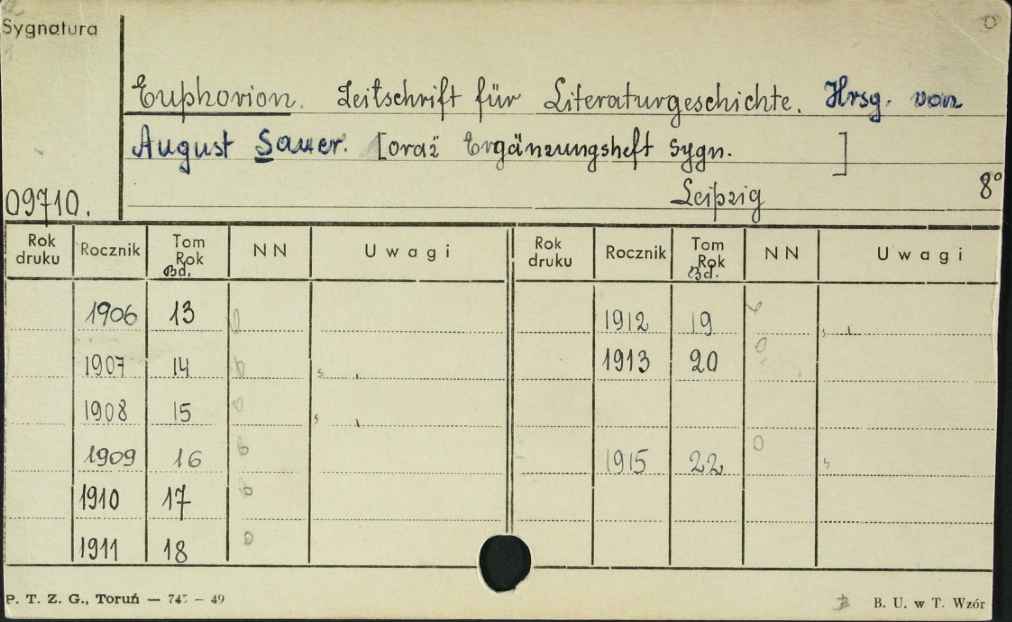 Sygnatura
Euphorion. Zeitschrift für Literaturgeschichte. Hrsg. von
August Sauer. [oraz Ergänzungsheft sygn. ]
09710. Leipzig 8°
Rok druku Rocznik Tom Rok Bd. NN Uwagi Rok druku Rocznik Tom Rok Bd. NN Uwagi
1906 13 1912 19
1907 14 1913 20
1908 15
1909 16 1915 22
1910 17
1911 18
P. T. Z. G., Toruń — 747 — 49 B. U. w T. Wzór